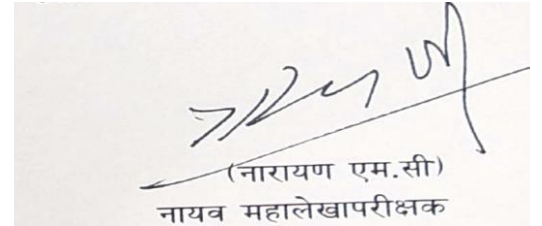 (नारायण एम.सी)
नायव महालेखापरीक्षक